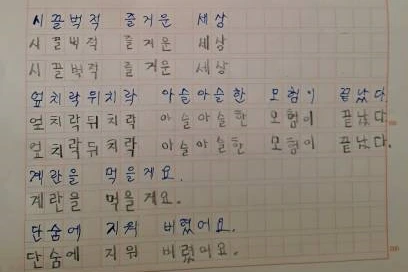 시끌벅적 즐거운 세상
시끌벅적 즐거운 세상
시끌벅적 즐거운 세상
엎치락뒤치락 아슬아슬한 모험이 끝났다.
엎치락뒤치락 아슬아슬한 모험이 끝났다.
엎치락뒤치락 아슬아슬한 모험이 끝났다.
계란을 먹을게요.
계란을 먹을게요.
단숨에 지워 버렸어요.
단숨에 지워 버렸어요.